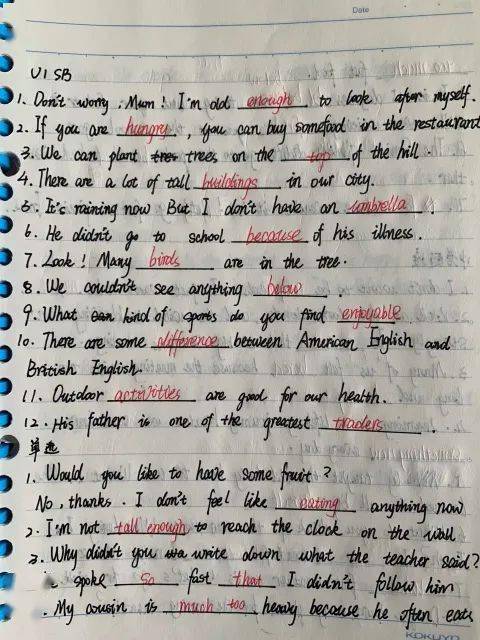 Date
U1 SB
1. Don't worry, Mum! I'm old enough to look after myself.
2. If you are hungry, you can buy somefood in the restaurant
3. We can plant trees on the top of the hill.
4. There are a lot of tall buildings in our city.
5. It's raining now But I don't have an umbrella.
6. He didn't go to school because of his illness.
7. Look! Many birds are in the tree.
8. We couldn't see anything below.
9. What kind of sports do you find enjoyable
10. There are some difference between American English and
British English.
11. Outdoor activities are good for our health.
12. His father is one of the greatest traders.
单选
1. Would you like to have some fruit?
No, thanks. I don't feel like eating anything now
2. I'm not tall enough to reach the clock on the wall
3. Why didn't you write down what the teacher said?
spoke so fast that I didn't follow him
My cousin is much too heavy because he often eats
KOKUYO